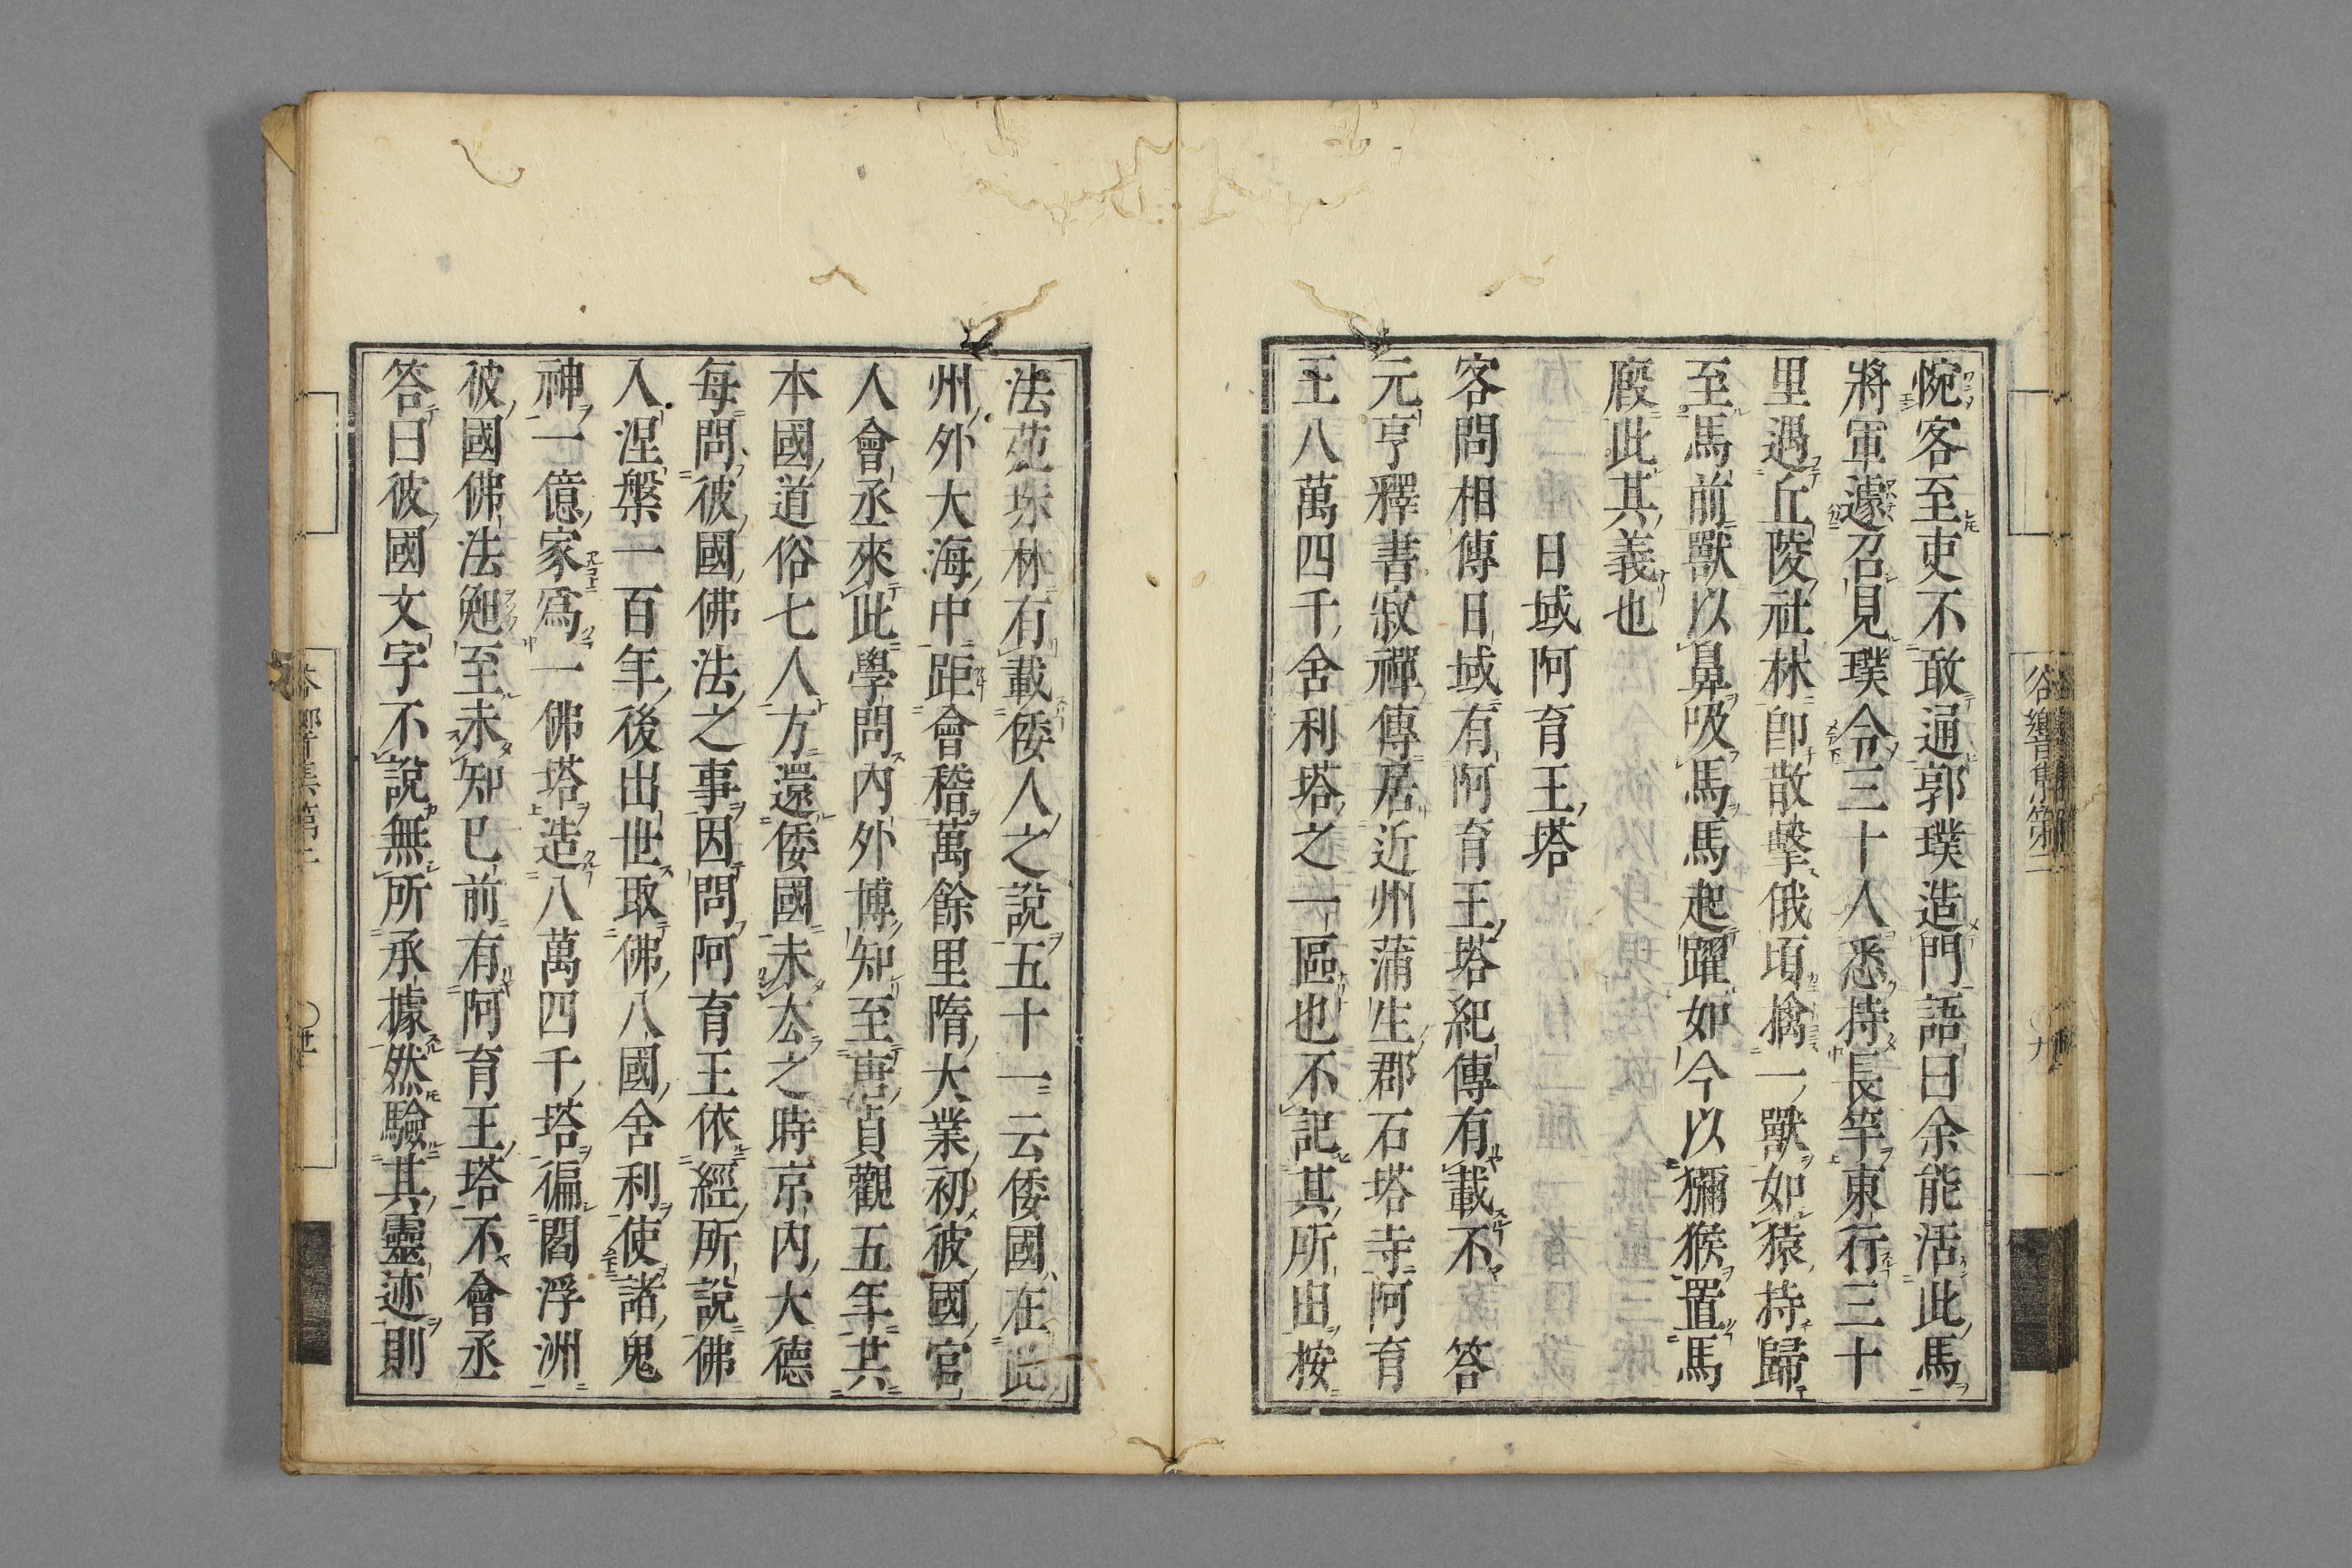 惋客至吏不敢通郭璞造門語曰余能活此馬
將軍遽召見璞令三十人悉持長竿東行三十
里遇丘陵社林即散擊俄頃擒一獸如猿持歸
至馬前獸以鼻吸馬馬起躍如今以獼猴置馬
廄此其義也
日域阿育王塔
客問相傳日域有阿育王塔紀傳有載不 答
元亨釋書寂禪傳居近州蒲生郡石塔寺阿育
王八萬四千舍利塔之一區也不記其所由按
法苑珠林有載倭人之說五十一云倭國在此
州外大海中距會稽萬餘里隋大業初彼國官
人會丞來此學問內外博知至唐貞觀五年共
本國道俗七人方還倭國未去之時京內大德
每問彼國佛法之事因問阿育王依經所說佛
入涅槃一百年後出世取佛八國舍利使諸鬼
神一億家為一佛塔造八萬四千塔徧閻浮洲
彼國佛法晚至未知已前有阿育王塔不會丞
答曰彼國文字不說無所承據然驗其靈迹則
谷響集第二